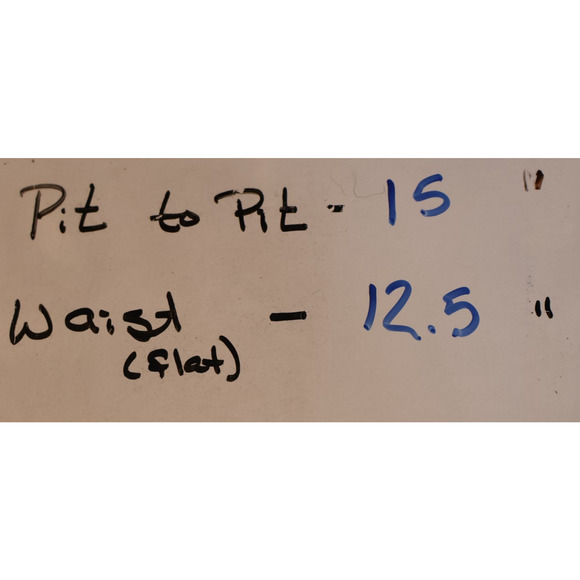 Pit to Pit - 15 "
Waist - 12.5 "
(flat)